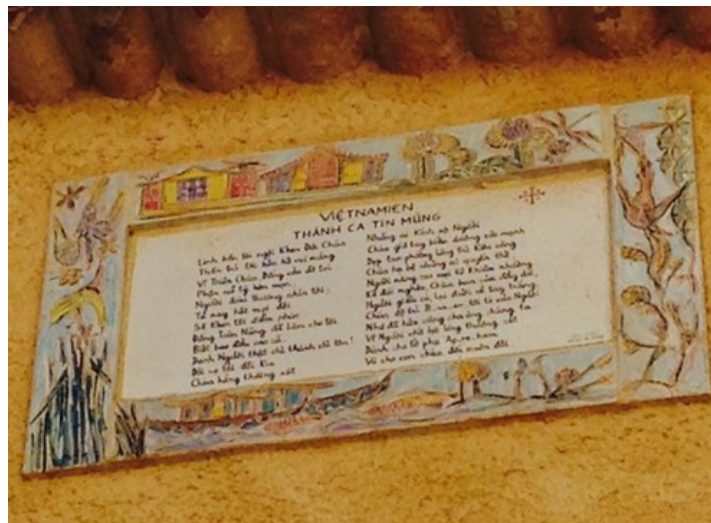 VIETNAMIEN
THÁNH CA TIN MỪNG
Linh hồn tôi ngợi Khen Đức Chúa
Thần trí tôi hớn hở vui mừng
Vì Thiên Chúa Đấng cứu độ tôi
Phận nữ tỳ hèn mọn
Người đoái thương nhìn tới;
Từ nay hết mọi đời
Sẽ Khen tôi diễm phúc
Đấng Toàn Năng đã làm cho tôi
Biết bao điều cao cả
Danh Người thật chí thánh chí tôn!
Đời nọ tới đời Kia
Chúa hằng thương xót
Những ai Kính sợ Người
Chúa giơ tay biểu dương sức mạnh
Dẹp tan phường lòng trí Kiêu căng
Chúa hạ bệ những ai quyền thế
Người nâng cao mọi Kẻ Khiêm nhường
Kẻ đói nghèo, Chúa ban của đầy dư,
Người giàu có, lại đuổi về tay trắng;
Chúa độ trì tôi tớ của Người
Như đã hứa cùng cha ông chúng ta
Vì Người nhớ lại lòng thương xót
Dành cho tổ phụ
Và cho con cháu đến muôn đời